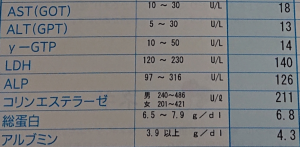 AST(GOT) 10 ～ 30 U/L 18
ALT(GPT) 5 ～ 30 U/L 13
γ－GTP 10 ～ 50 U/L 14
LDH 120 ～ 230 U/L 140
ALP 97 ～ 316 U/L 126
コリンエステラーゼ 男 240～486 女 201～421 U/ℓ 211
総蛋白 6.5 ～ 7.9 g/dl 6.8
アルブミン 3.9 以上 g/dl 4.3